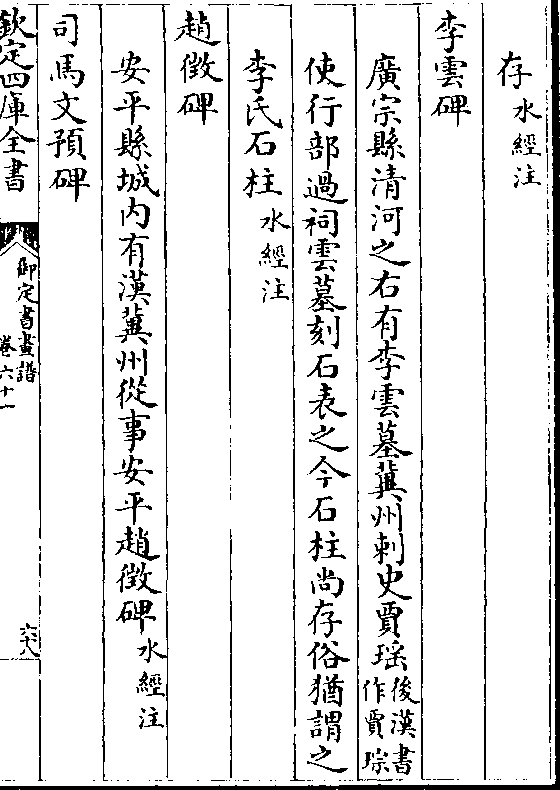 存水經注
李雲碑
廣宗縣清河之右有李雲墓冀州刺史賈瑤後漢書作賈琮
使行部過祠雲墓刻石表之今石柱尚存俗猶謂之
李氏石柱水經注
趙徵碑
安平縣城内有漢冀州從事安平趙徵碑水經注
司馬文預碑
欽定四庫全書
御定書畫譜
卷六十一
六八